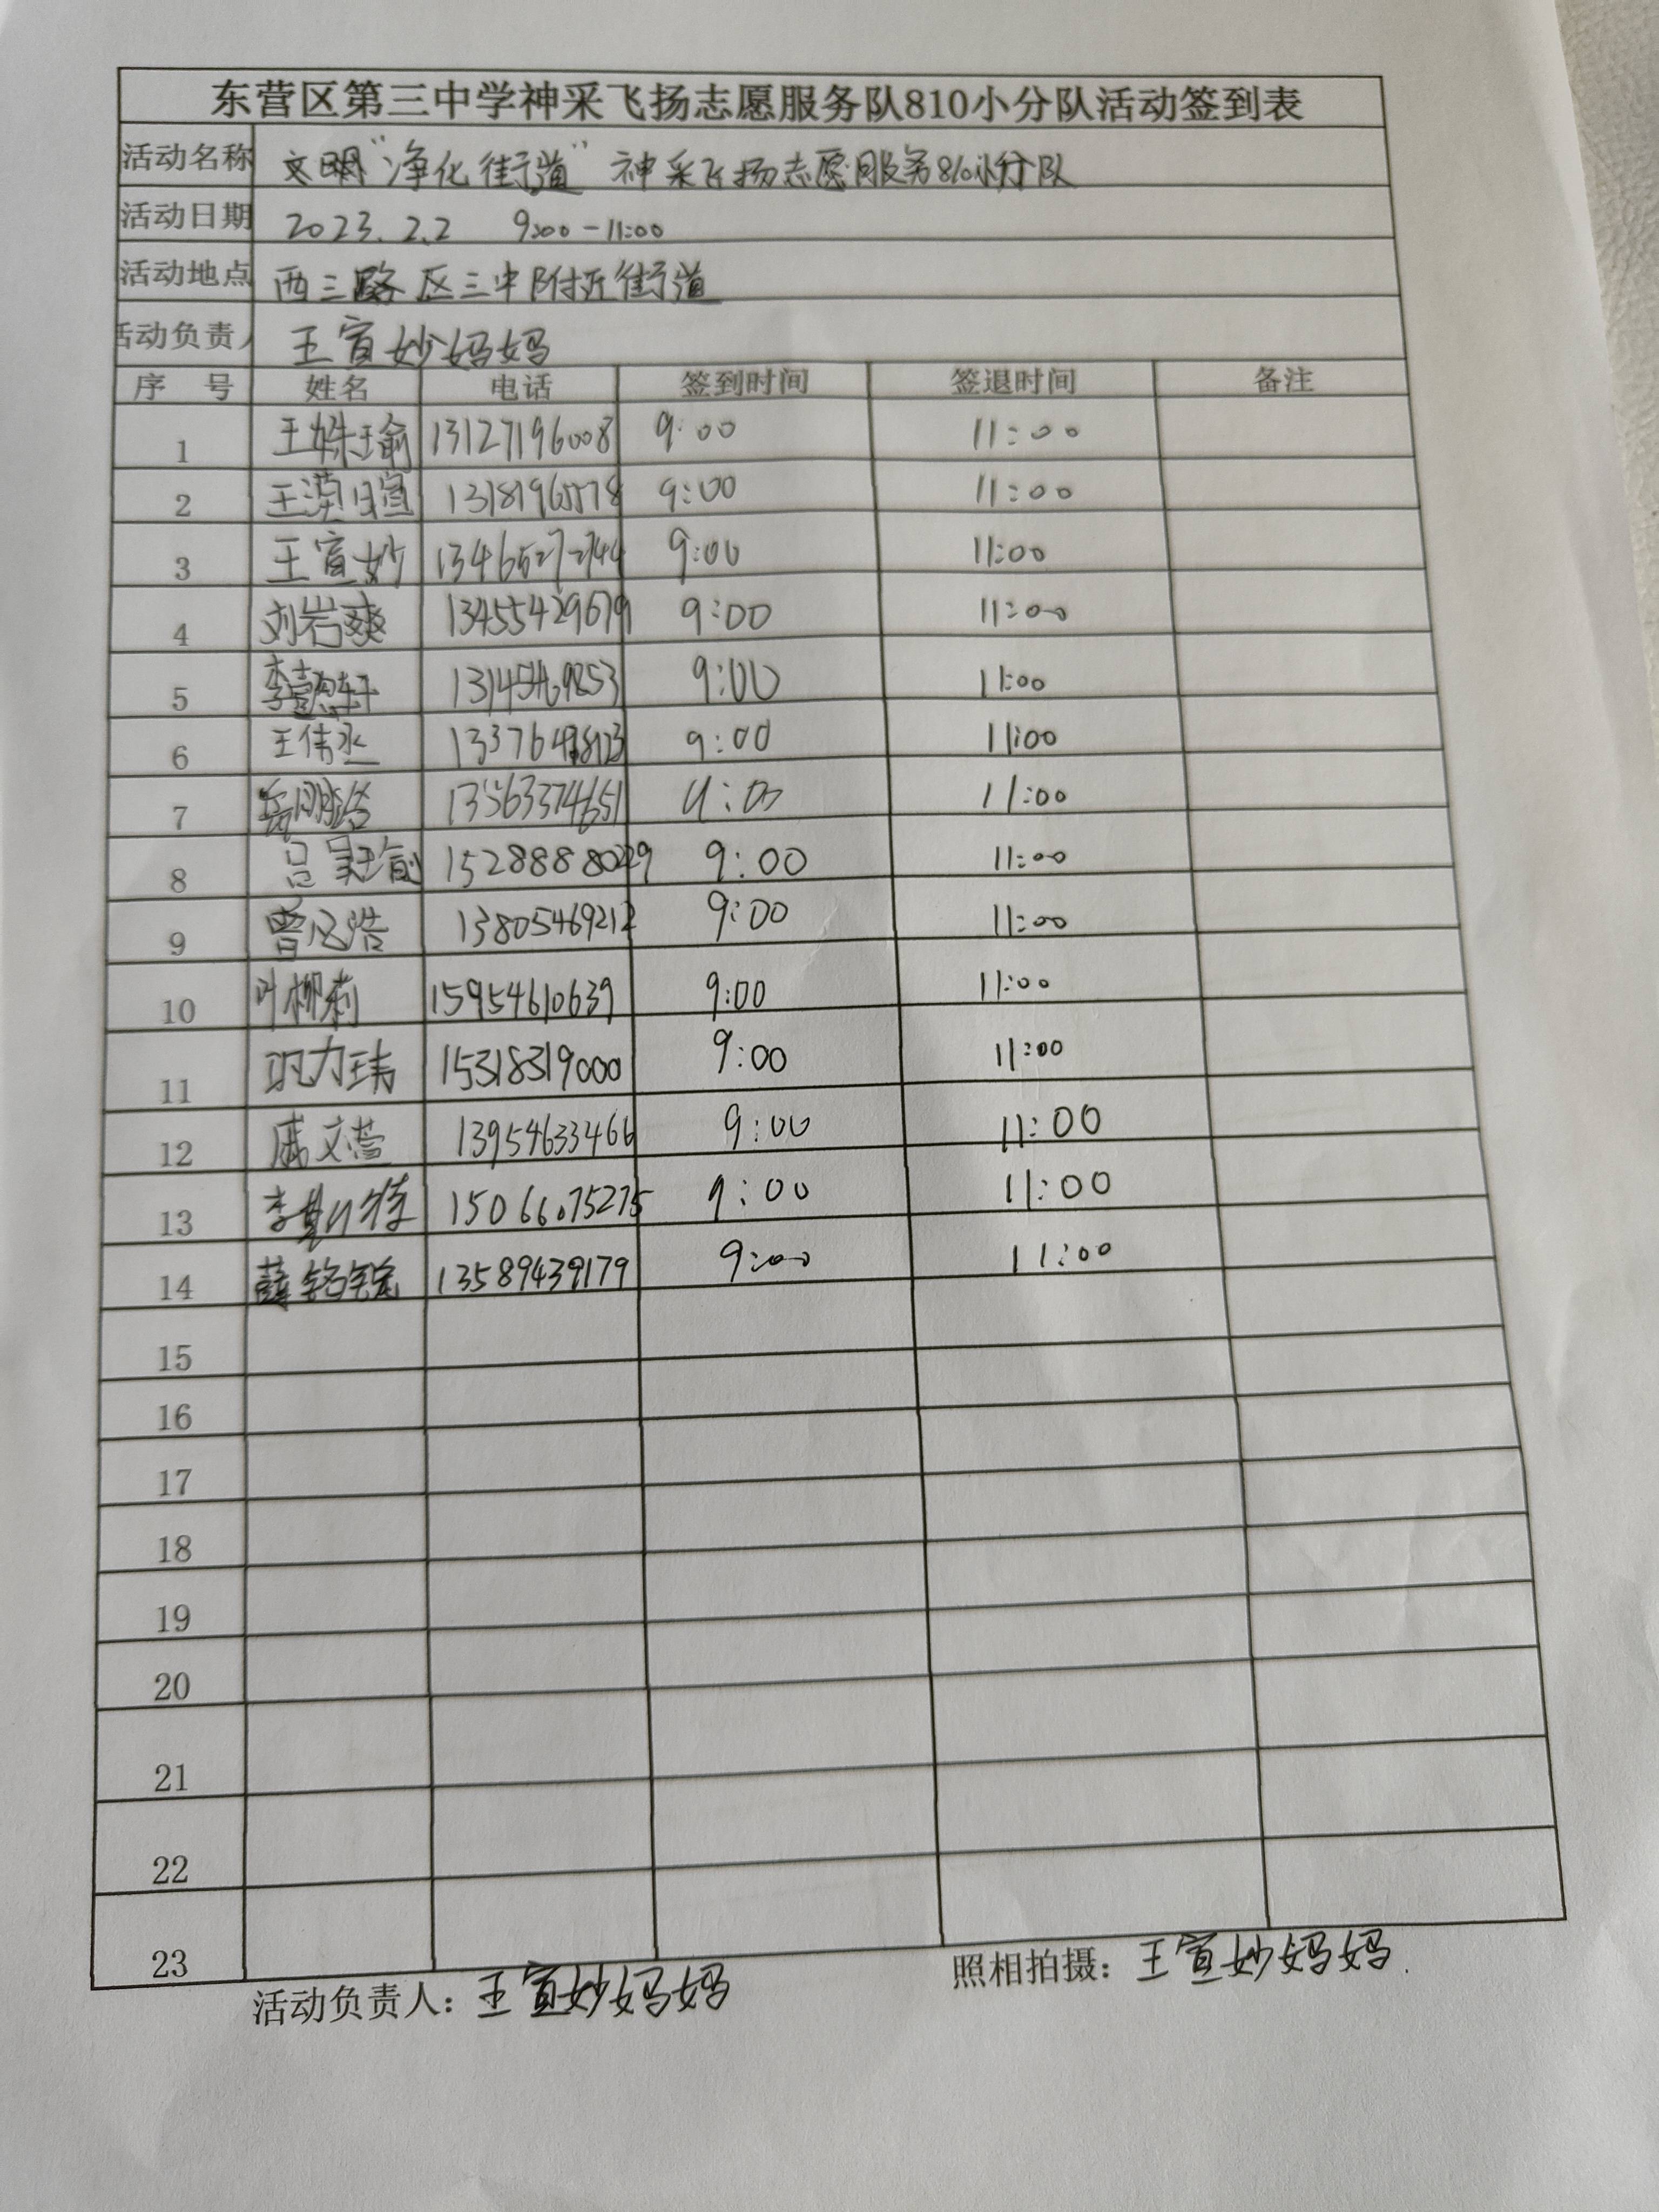 东营区第三中学神采飞扬志愿服务队810小分队活动签到表
活动名称 文明"净化街道" 神采飞扬志愿服务810小分队
活动日期 2023.2.2 9:00-11:00
活动地点 西三路区三中附近街道
活动负责人 王宣妙妈妈
序号 姓名 电话 签到时间 签退时间 备注
1 王姝瑜 13127196008 9:00 11:00
2 9:00 11:00
3 王宣妙 9:00 11:00
4 刘岩爽 13455429679 9:00 11:00
5 9:00 11:00
6 王伟丞 9:00 11:00
7 13563374651 9:00 11:00
8 吕昊瑜 9:00 11:00
9 13805469212 9:00 11:00
10 叶柳莉 15954610639 9:00 11:00
11 巩力玮 15318319000 9:00 11:00
12 戚文萱 13954633466 9:00 11:00
13 15066075275 9:00 11:00
14 13589439179 9:00 11:00
15
16
17
18
19
20
21
22
23
活动负责人：王宣妙妈妈 照相拍摄：王宣妙妈妈.